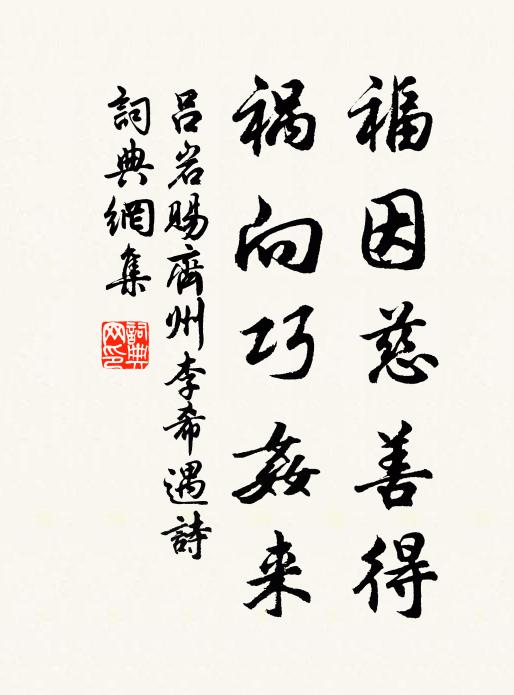 福因慈善得
祸向巧姦来
吕岩賜齊州李希遇詩
詞典網集
詞典
网印